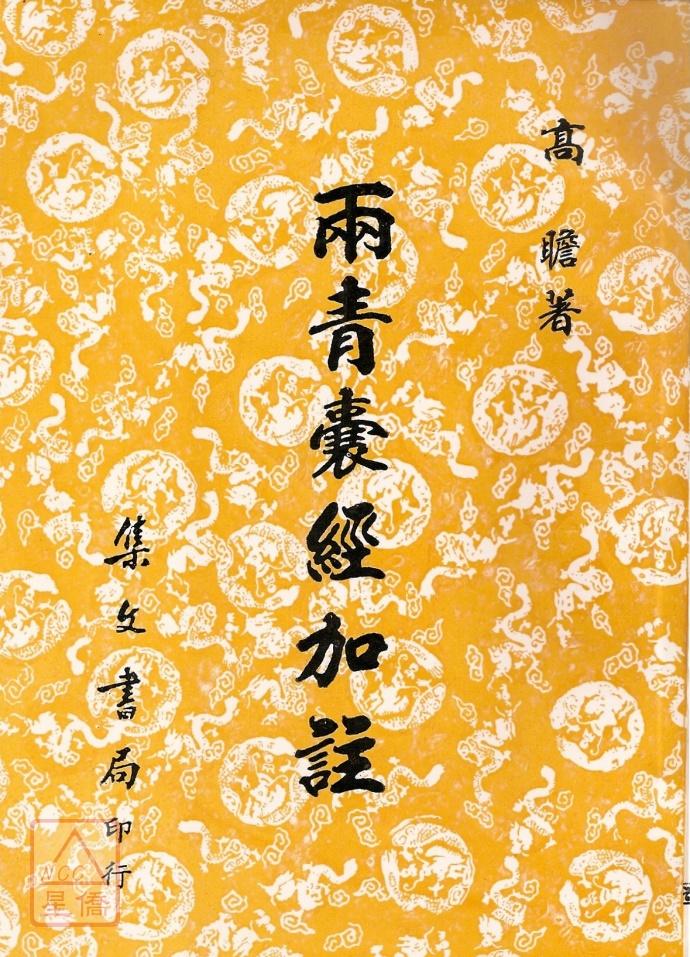 高瞻著
兩青囊經加註
集文書局印行
WCC
星僑